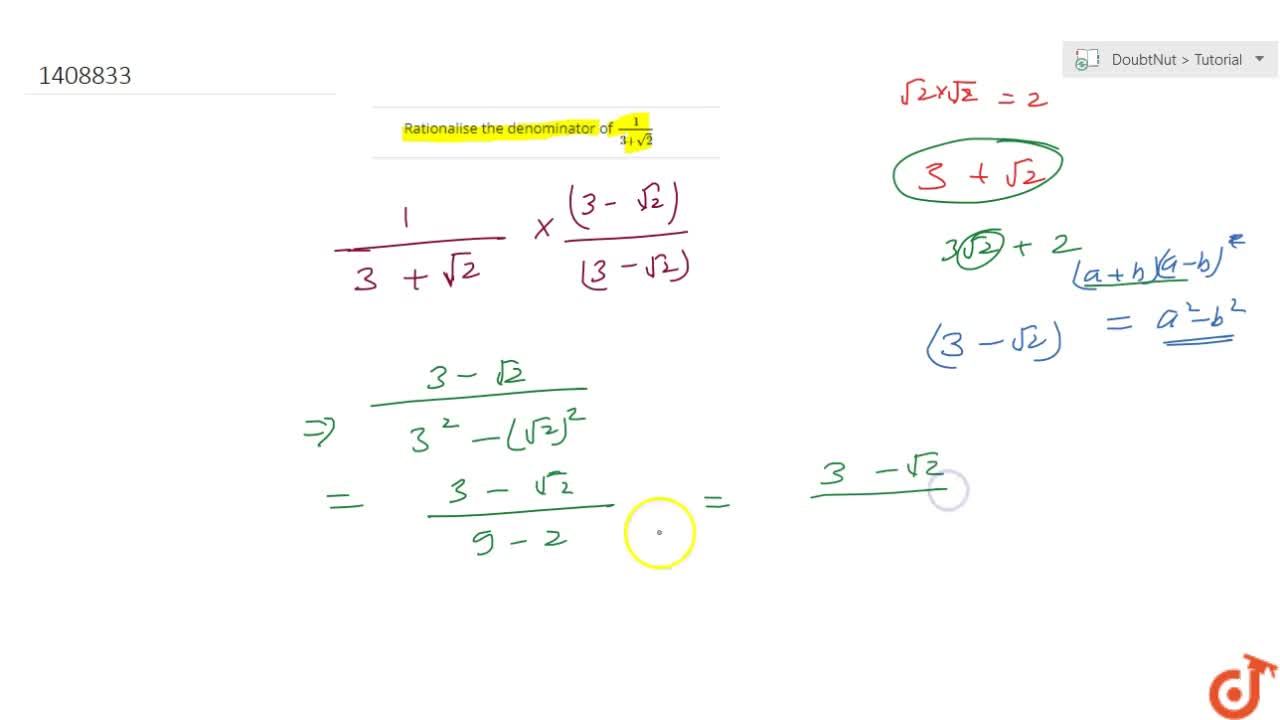 1408833
DoubtNut > Tutorial
Rationalise the denominator of 1/(3+√2)
√2×√2 = 2
3 + √2
3√2 + 2
(a+b)(a-b)
= a²-b²
(3 - √2)
1/(3 + √2) × (3 - √2)/(3 - √2)
⇒ (3 - √2)/(3² - (√2)²)
= (3 - √2)/(9 - 2) = 3 - √2